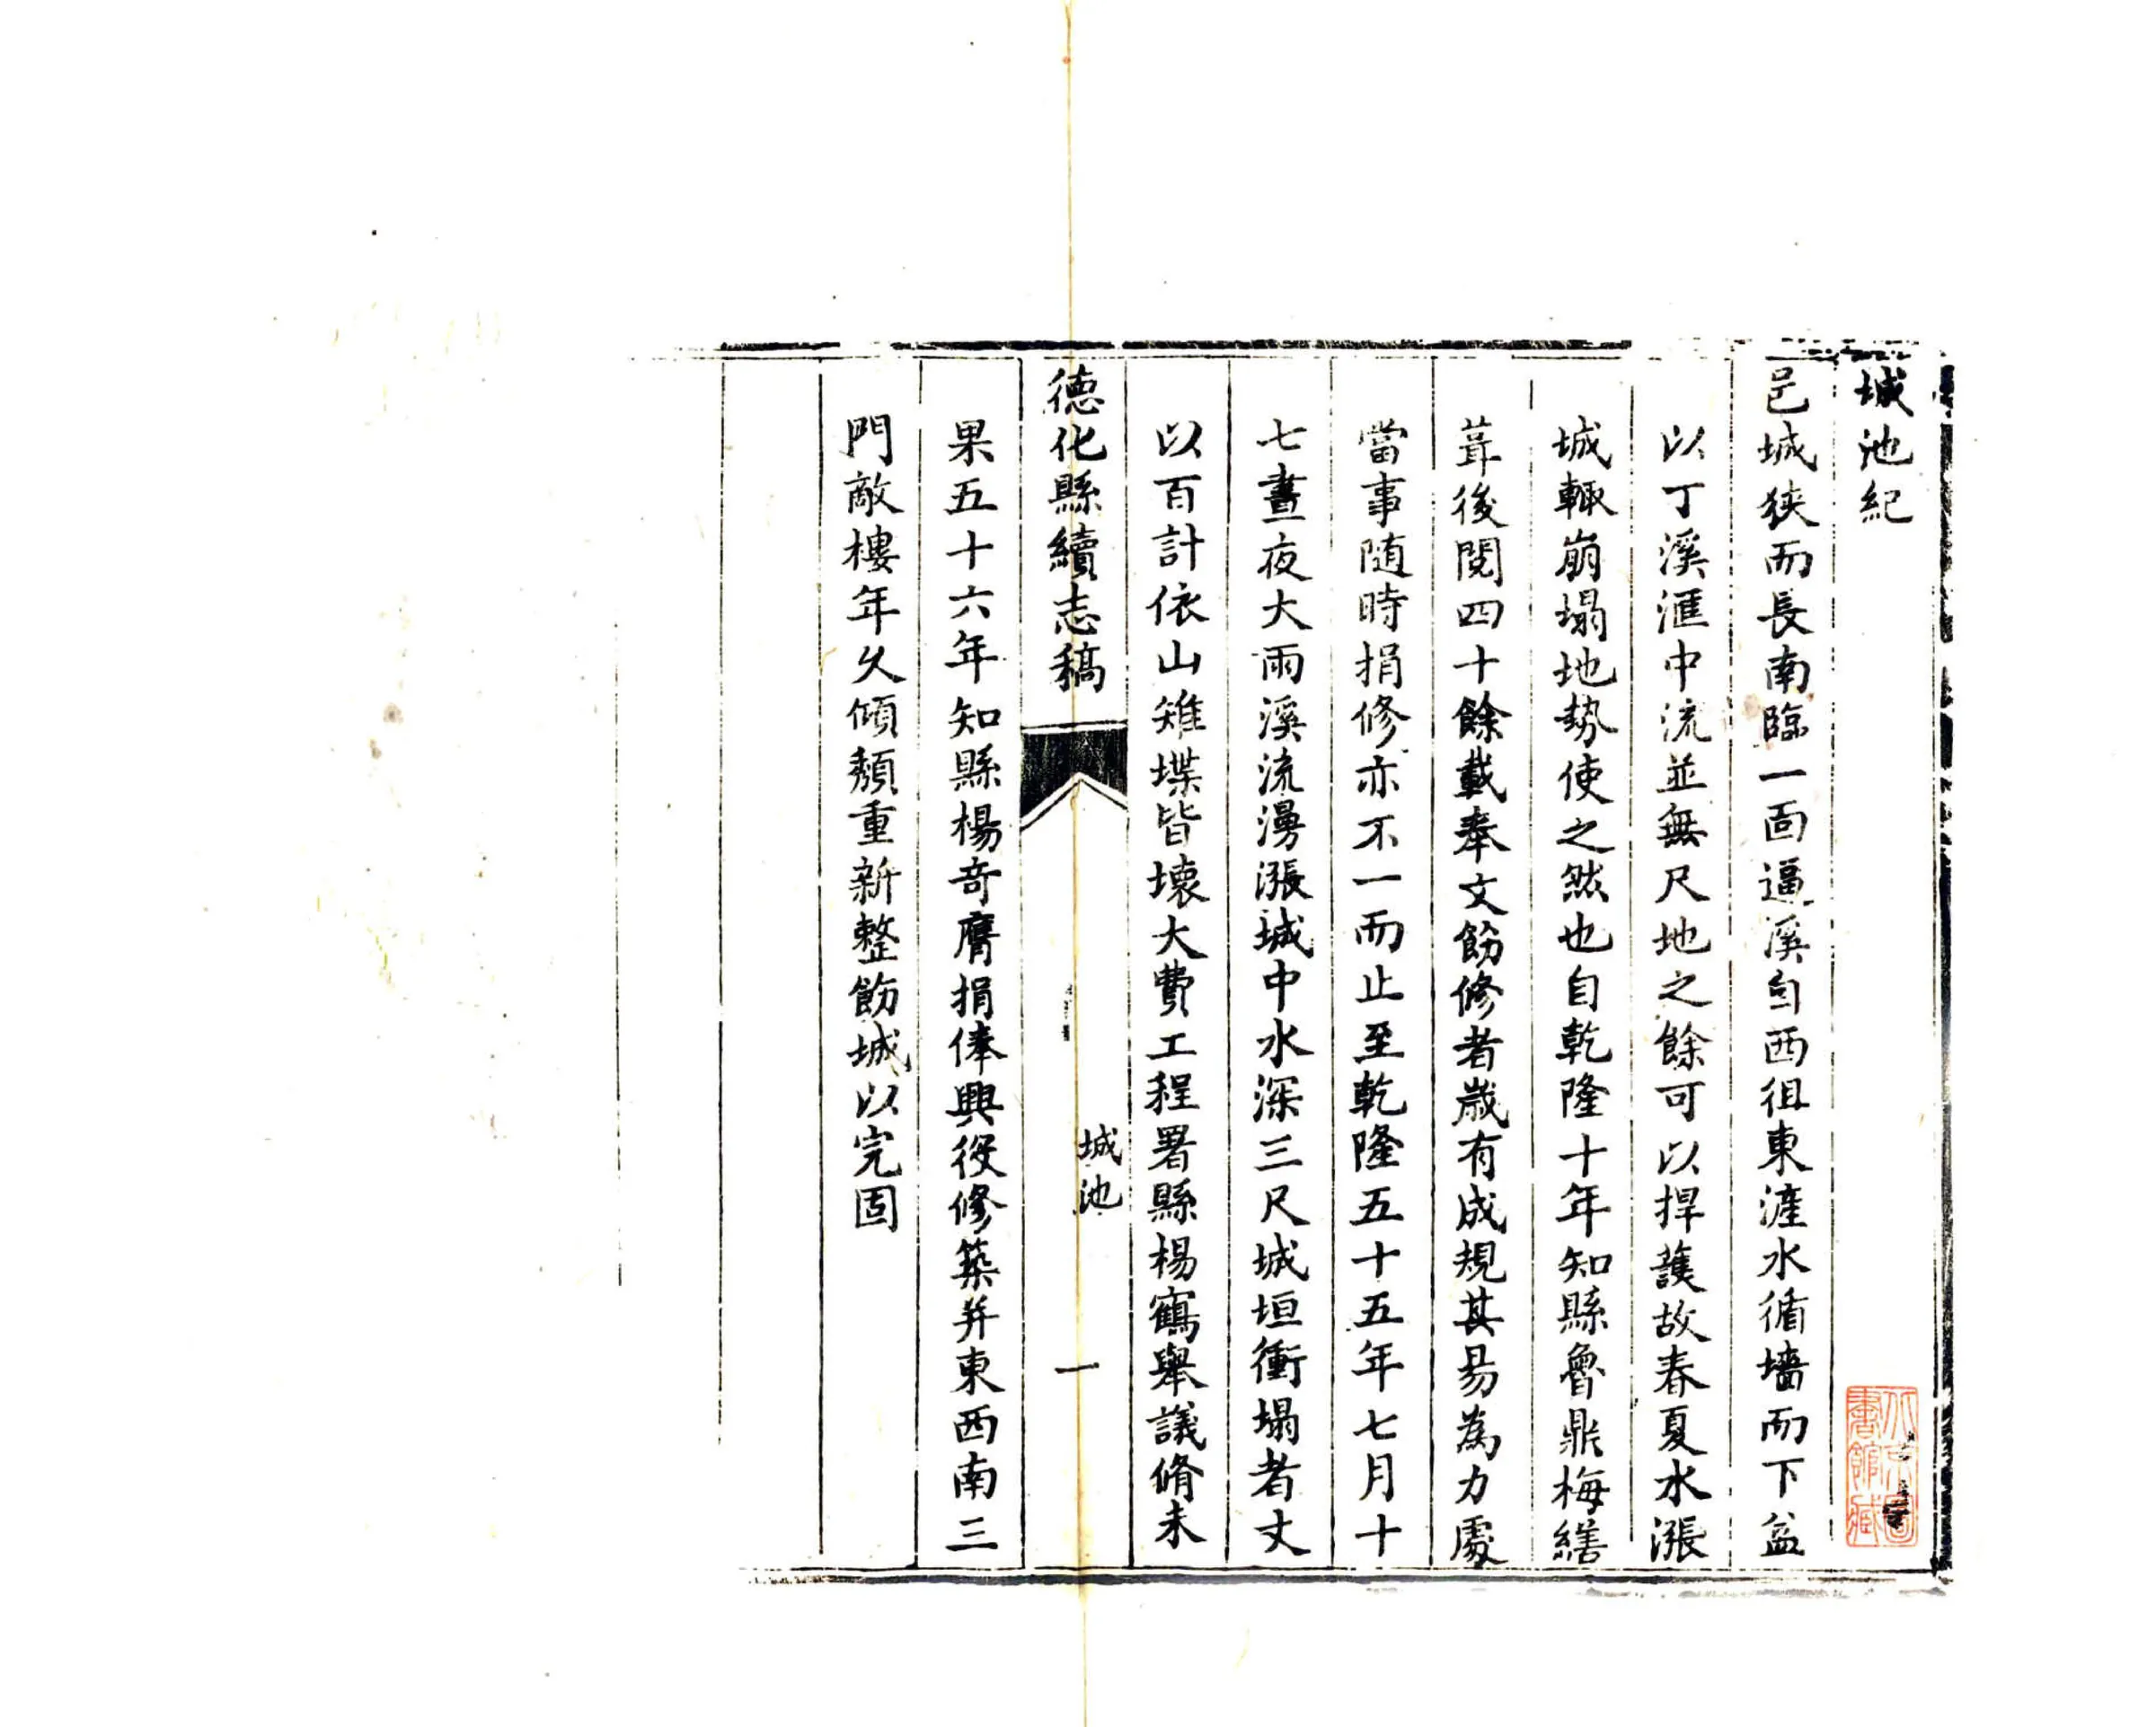 城池紀
邑城狹而長南臨一面逼溪自西徂東漄水循墻而下益
以丁溪滙中流並無尺地之餘可以捍護故春夏水漲
城輙崩塌地勢使之然也自乾隆十年知縣魯鼎梅繕
葺後閱四十餘載奉文飭修者歲有成規其易為力處
當事随時捐修亦不一而止至乾隆五十五年七月十
七晝夜大雨溪流湧漲城中水深三尺城垣衝塌者丈
以百計依山雉堞皆壞大費工程署縣楊鶴舉議脩未
德化縣續志稿
城池
一
果五十六年知縣楊奇膺捐俸興役修築并東西南三
門敵樓年久傾頹重新整飭城以完固